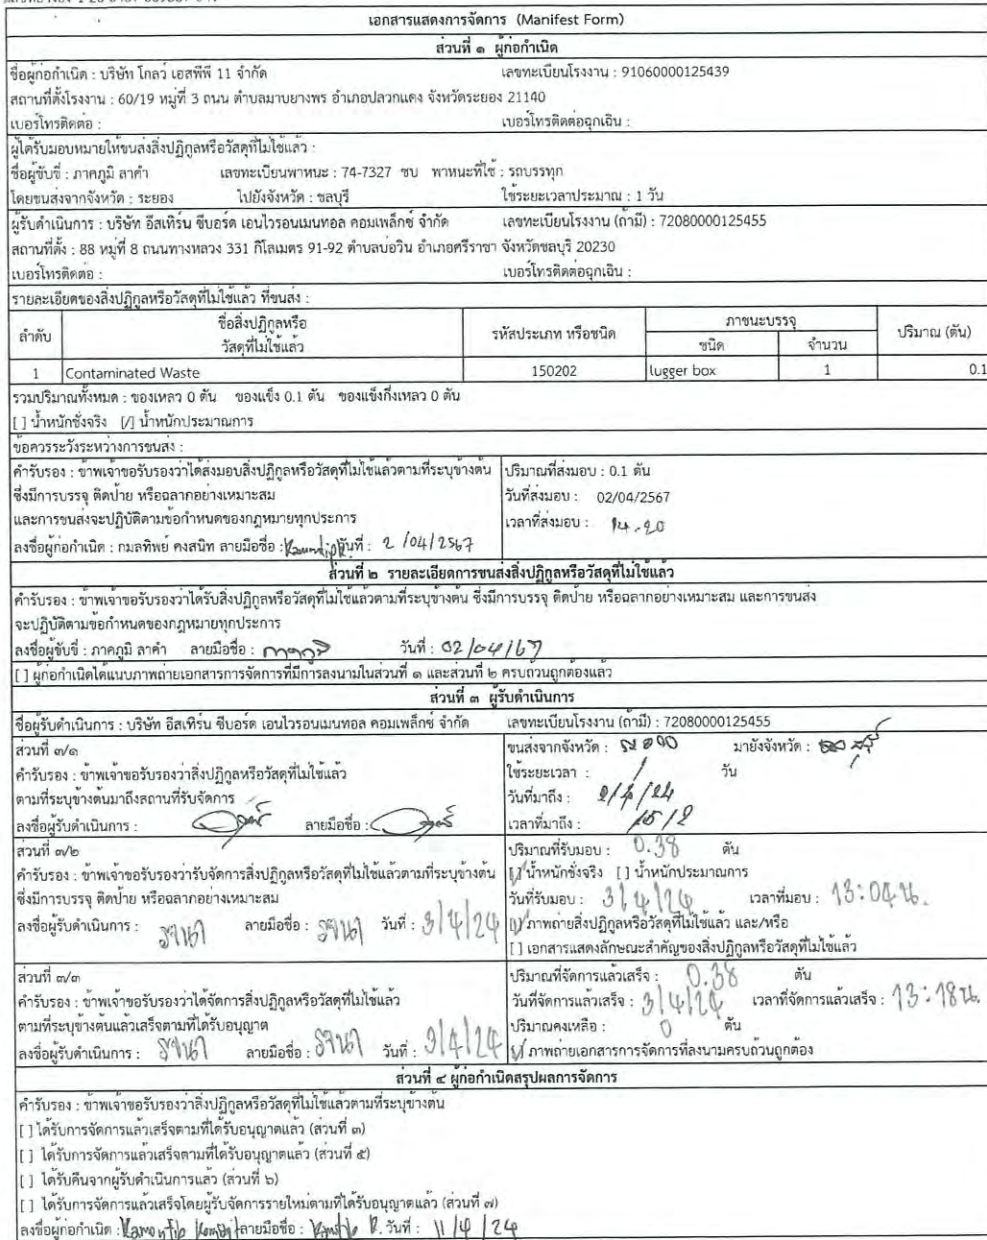 เอกสารแสดงการจัดการ (Manifest Form)
ส่วนที่ ๑ ผู้ก่อกำเนิด
ชื่อผู้ก่อกำเนิด : บริษัท โกลว์ เอสพีพี 11 จำกัด เลขทะเบียนโรงงาน : 91060000125439
สถานที่ตั้งโรงงาน : 60/19 หมู่ที่ 3 ถนน ตำบลมาบยางพร อำเภอปลวกแดง จังหวัดระยอง 21140
เบอร์โทรติดต่อ : เบอร์โทรติดต่อฉุกเฉิน :
ผู้ได้รับมอบหมายให้ขนส่งสิ่งปฏิกูลหรือวัสดุที่ไม่ใช้แล้ว :
ชื่อผู้ขับขี่ : ภาคภูมิ ลาคำ เลขทะเบียนพาหนะ : 74-7327 ชบ พาหนะที่ใช้ : รถบรรทุก
โดยขนส่งจากจังหวัด : ระยอง ไปยังจังหวัด : ชลบุรี ใช้ระยะเวลาประมาณ : 1 วัน
ผู้รับดำเนินการ : บริษัท อีสเทิร์น ซีบอร์ด เอนไวรอนเมนทอล คอมเพล็กซ์ จำกัด เลขทะเบียนโรงงาน (ถ้ามี) : 72080000125455
สถานที่ตั้ง : 88 หมู่ที่ 8 ถนนทางหลวง 331 กิโลเมตร 91-92 ตำบลบ่อวิน อำเภอศรีราชา จังหวัดชลบุรี 20230
เบอร์โทรติดต่อ : เบอร์โทรติดต่อฉุกเฉิน :
รายละเอียดของสิ่งปฏิกูลหรือวัสดุที่ไม่ใช้แล้ว ที่ขนส่ง :
ลำดับ ชื่อสิ่งปฏิกูลหรือ วัสดุที่ไม่ใช้แล้ว รหัสประเภท หรือชนิด ภาชนะบรรจุ ชนิด จำนวน ปริมาณ (ตัน)
1 Contaminated Waste 150202 lugger box 1 0.1
รวมปริมาณทั้งหมด : ของเหลว 0 ตัน ของแข็ง 0.1 ตัน ของแข็งกึ่งเหลว 0 ตัน
[ ] น้ำหนักชั่งจริง [/] น้ำหนักประมาณการ
ข้อควรระวังระหว่างการขนส่ง :
คำรับรอง : ข้าพเจ้าขอรับรองว่าได้ส่งมอบสิ่งปฏิกูลหรือวัสดุที่ไม่ใช้แล้วตามที่ระบุข้างต้น ปริมาณที่ส่งมอบ : 0.1 ตัน
ซึ่งมีการบรรจุ ติดป้าย หรือฉลากอย่างเหมาะสม วันที่ส่งมอบ : 02/04/2567
และการขนส่งจะปฏิบัติตามข้อกำหนดของกฎหมายทุกประการ เวลาที่ส่งมอบ : 14.20
ลงชื่อผู้ก่อกำเนิด : กมลทิพย์ คงสนิท ลายมือชื่อ : วันที่ : 2/04/2567
ส่วนที่ ๒ รายละเอียดการขนส่งสิ่งปฏิกูลหรือวัสดุที่ไม่ใช้แล้ว
คำรับรอง : ข้าพเจ้าขอรับรองว่าได้รับสิ่งปฏิกูลหรือวัสดุที่ไม่ใช้แล้วตามที่ระบุข้างต้น ซึ่งมีการบรรจุ ติดป้าย หรือฉลากอย่างเหมาะสม และการขนส่ง
จะปฏิบัติตามข้อกำหนดของกฎหมายทุกประการ
ลงชื่อผู้ขับขี่ : ภาคภูมิ ลาคำ ลายมือชื่อ : ภาคภูมิ วันที่ : 02/04/67
[ ] ผู้ก่อกำเนิดได้แนบภาพถ่ายเอกสารการจัดการที่มีการลงนามในส่วนที่ ๑ และส่วนที่ ๒ ครบถ้วนถูกต้องแล้ว
ส่วนที่ ๓ ผู้รับดำเนินการ
ชื่อผู้รับดำเนินการ : บริษัท อีสเทิร์น ซีบอร์ด เอนไวรอนเมนทอล คอมเพล็กซ์ จำกัด เลขทะเบียนโรงงาน (ถ้ามี) : 72080000125455
ส่วนที่ ๓/๑ ขนส่งจากจังหวัด : ระยอง มายังจังหวัด : ชลบุรี
คำรับรอง : ข้าพเจ้าขอรับรองว่าสิ่งปฏิกูลหรือวัสดุที่ไม่ใช้แล้ว ใช้ระยะเวลา : 1 วัน
ตามที่ระบุข้างต้นมาถึงสถานที่รับจัดการ วันที่มาถึง : 2/4/24
ลงชื่อผู้รับดำเนินการ : ลายมือชื่อ : เวลาที่มาถึง :
ส่วนที่ ๓/๒ ปริมาณที่รับมอบ : 0.38 ตัน
คำรับรอง : ข้าพเจ้าขอรับรองว่ารับจัดการสิ่งปฏิกูลหรือวัสดุที่ไม่ใช้แล้วตามที่ระบุข้างต้น [/] น้ำหนักชั่งจริง [ ] น้ำหนักประมาณการ
ซึ่งมีการบรรจุ ติดป้าย หรือฉลากอย่างเหมาะสม วันที่รับมอบ : 3/4/24 เวลาที่มอบ : 13:04 น.
ลงชื่อผู้รับดำเนินการ : ลายมือชื่อ : วันที่ : 3/4/24 [/] ภาพถ่ายสิ่งปฏิกูลหรือวัสดุที่ไม่ใช้แล้ว และ/หรือ
[ ] เอกสารแสดงลักษณะสำคัญของสิ่งปฏิกูลหรือวัสดุที่ไม่ใช้แล้ว
ส่วนที่ ๓/๓ ปริมาณที่จัดการแล้วเสร็จ : 0.38 ตัน
คำรับรอง : ข้าพเจ้าขอรับรองว่าได้จัดการสิ่งปฏิกูลหรือวัสดุที่ไม่ใช้แล้ว วันที่จัดการแล้วเสร็จ : 3/4/24 เวลาที่จัดการแล้วเสร็จ : 13:18 น.
ตามที่ระบุข้างต้นแล้วเสร็จตามที่ได้รับอนุญาต ปริมาณคงเหลือ : 0 ตัน
ลงชื่อผู้รับดำเนินการ : ลายมือชื่อ : วันที่ : 3/4/24 [/] ภาพถ่ายเอกสารการจัดการที่ลงนามครบถ้วนถูกต้อง
ส่วนที่ ๔ ผู้ก่อกำเนิดสรุปผลการจัดการ
คำรับรอง : ข้าพเจ้าขอรับรองว่าสิ่งปฏิกูลหรือวัสดุที่ไม่ใช้แล้วตามที่ระบุข้างต้น
[ ] ได้รับการจัดการแล้วเสร็จตามที่ได้รับอนุญาตแล้ว (ส่วนที่ ๓)
[ ] ได้รับการจัดการแล้วเสร็จตามที่ได้รับอนุญาตแล้ว (ส่วนที่ ๕)
[ ] ได้รับคืนจากผู้รับดำเนินการแล้ว (ส่วนที่ ๖)
[ ] ได้รับการจัดการแล้วเสร็จโดยผู้รับจัดการรายใหม่ตามที่ได้รับอนุญาตแล้ว (ส่วนที่ ๗)
ลงชื่อผู้ก่อกำเนิด : ลายมือชื่อ : วันที่ : 11/4/24